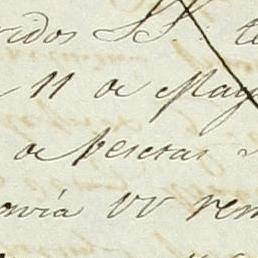 ridos SS. te
11 de May
de pesetas
nvía VV rem